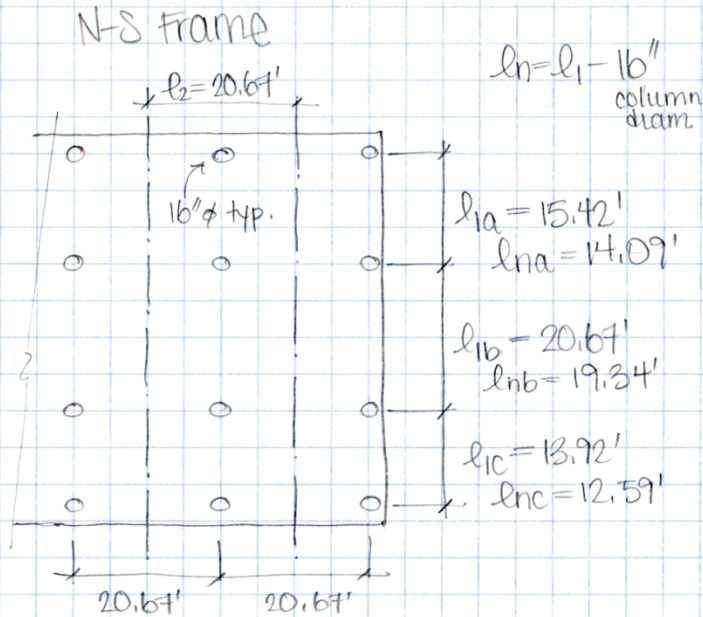 N-S Frame
l₂=20.67'
ln=l₁-16"
column
diam.
16"φ typ.
l₁a=15.42'
lna=14.09'
l₁b=20.67'
lnb=19.34'
l₁c=13.92'
lnc=12.59'
20.67' 20.67'